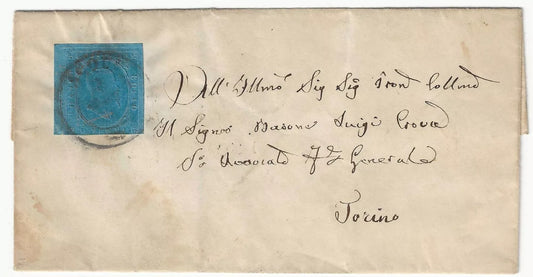 All' Illmo Sig Sig Pron Collmo
Il Signor Barone Luigi
Sr Avvocato Fle Generale
Torino